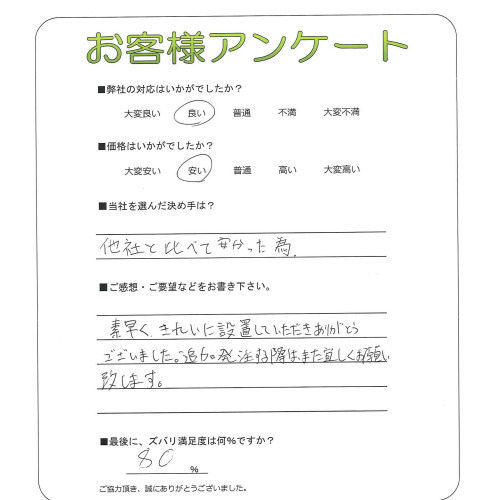 お客様アンケート
■弊社の対応はいかがでしたか?
大変良い 良い 普通 不満 大変不満
■価格はいかがでしたか?
大変安い 安い 普通 高い 大変高い
■当社を選んだ決め手は?
他社と比べて安かった為.
■ご感想・ご要望などをお書き下さい。
素早く、きれいに設置していただきありがとう
ございました。発注する際はまた宜しくお願い
致します。
■最後に、ズバリ満足度は何%ですか?
80
%
ご協力頂き、誠にありがとうございました。